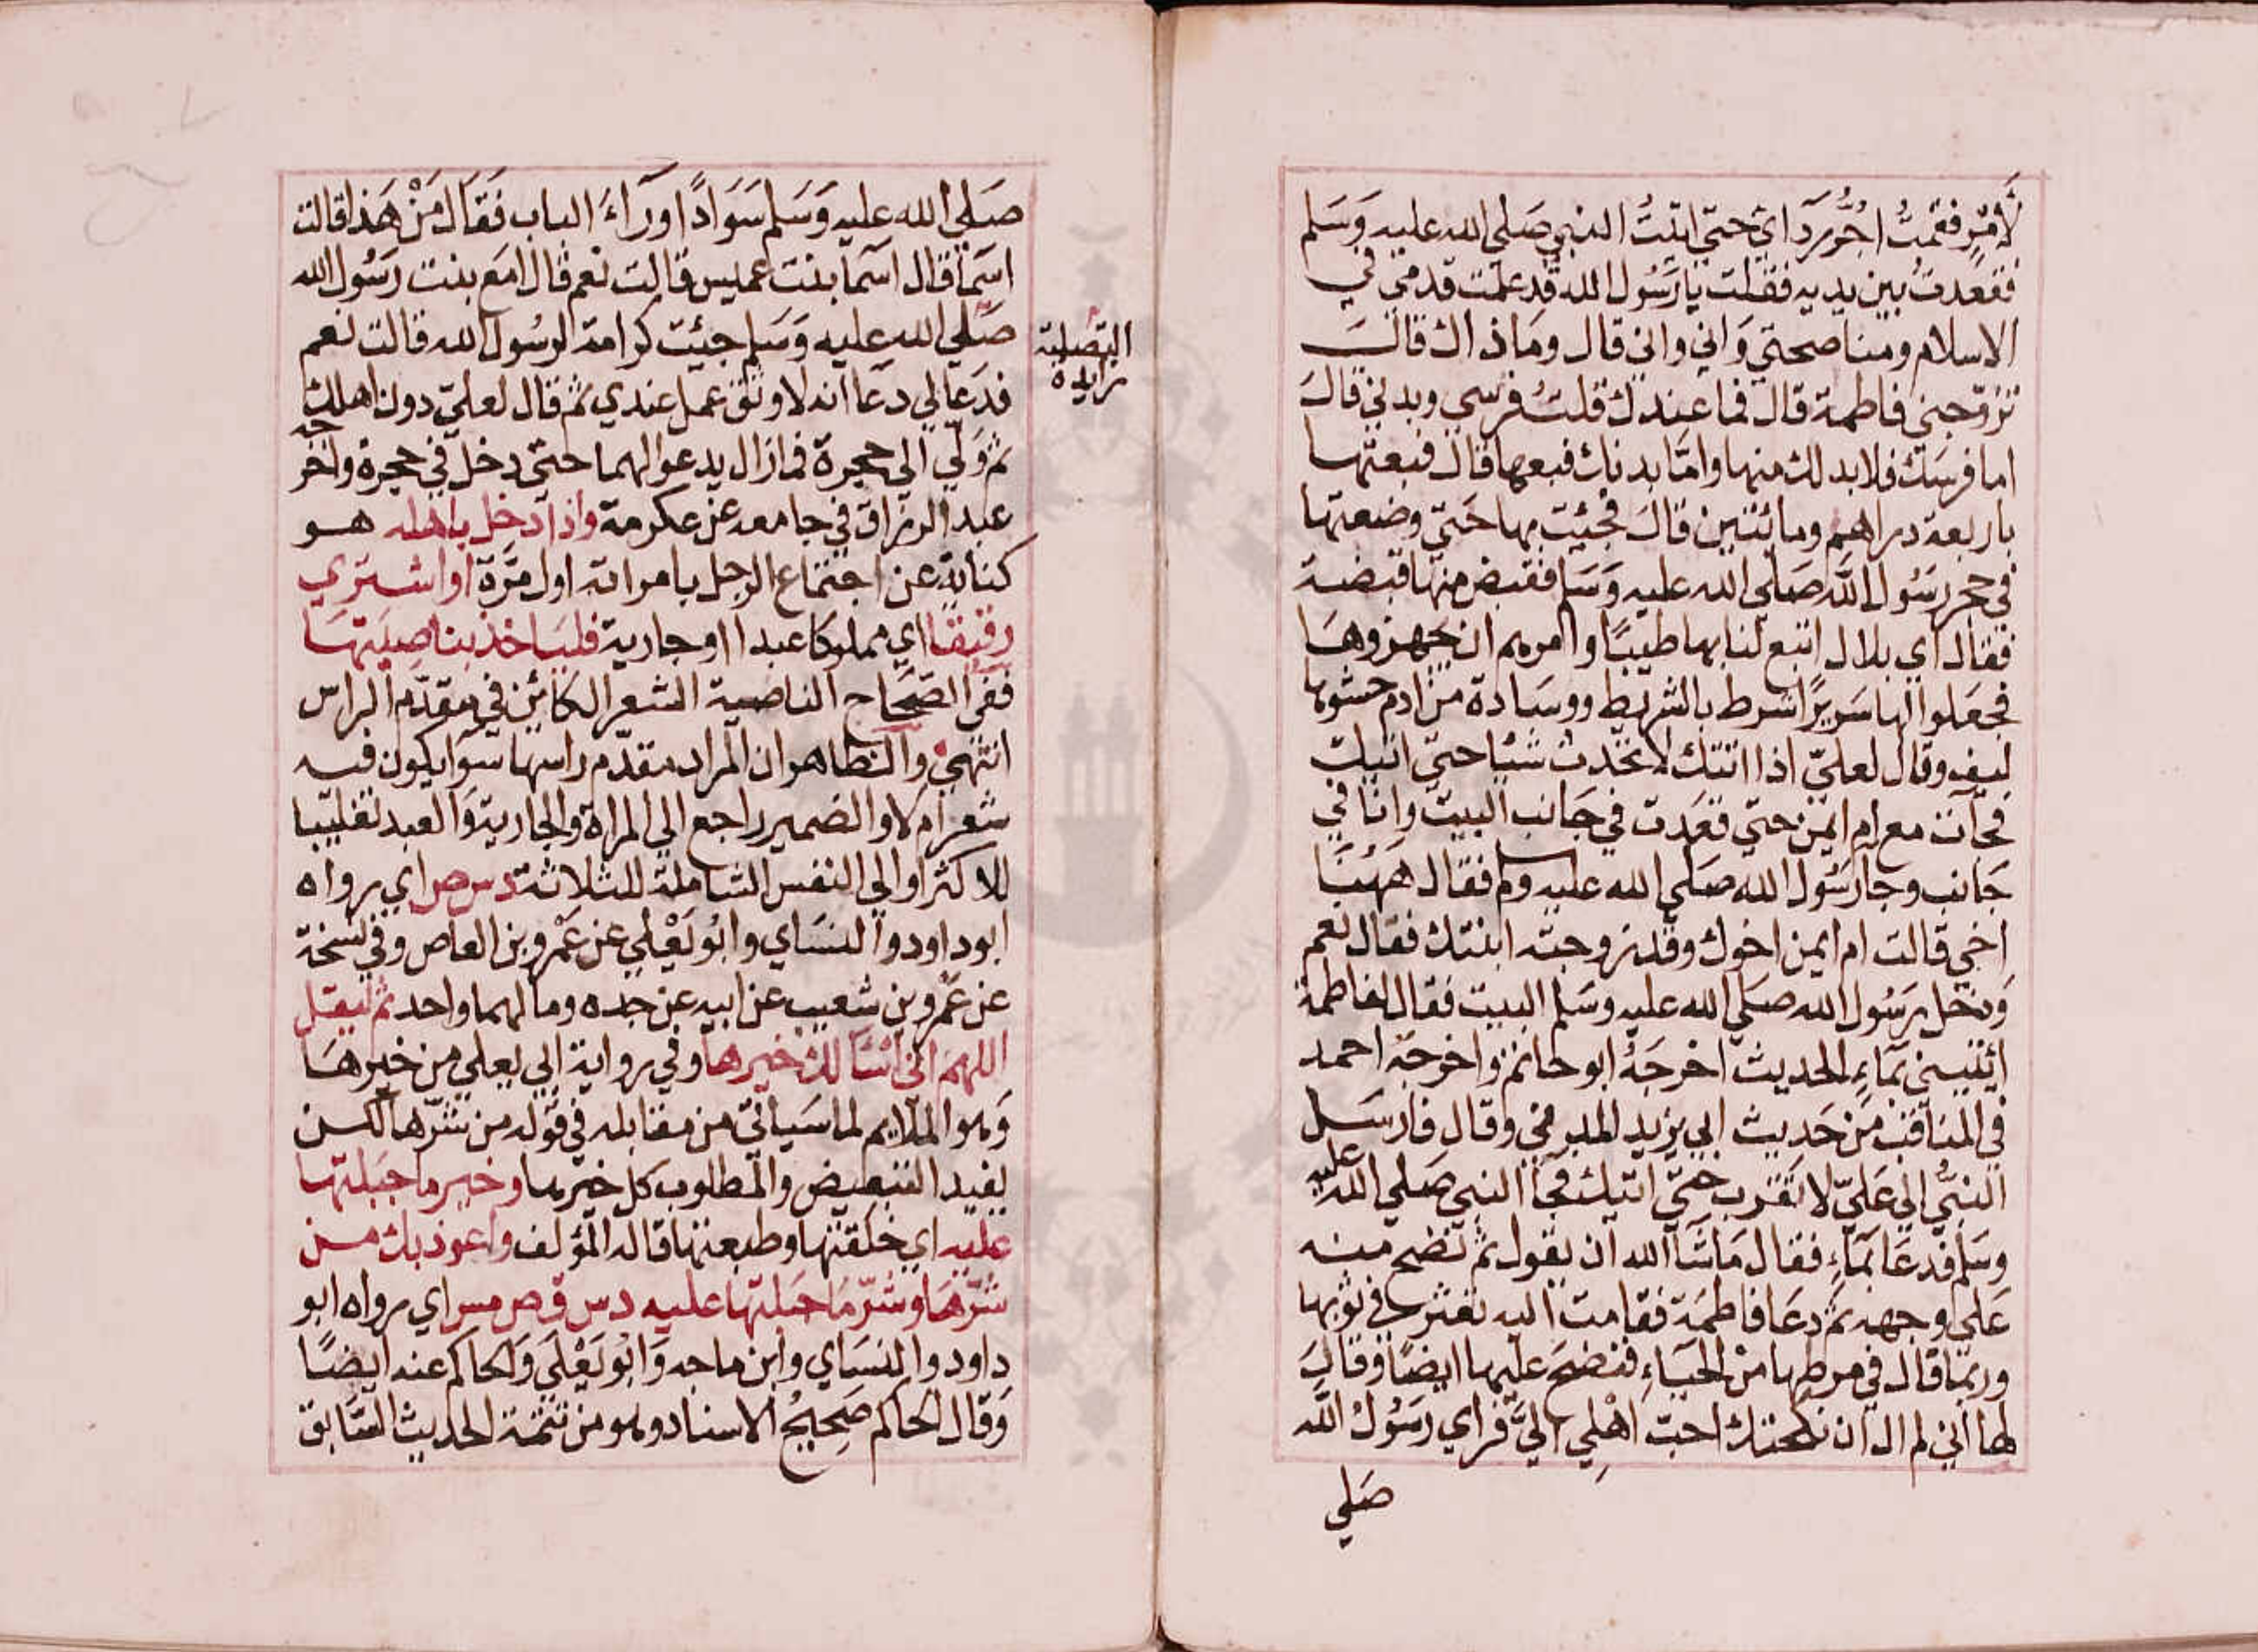 لأمر فقمتُ اجُّر ردآئي حتي اتيتُ النبي صَلي الله عليه وَسَلم
فقعدتُ بين يديه فقلت يا رَسُول الله قد علمت قدمي في
الاسلام ومناصحتي وَاني واني قال ومَا ذاك قالــَ
تزوّجني فاطمة قال فما عندك قلتُ فرسي وبدني قالَ
اما فرسَك فلابد لك منها وامّا بدنك فبعها قال فبعتها
باربعة دراهم ومائتين قالَ فجئيت بها حَتيّ وضعتها
في حجر رَسُول اللّه صَلي الله عليه وَسَلم فقبض منها قبضة
فقال اي بلال ابتع لنا بها طيبًا وامرهم ان يجهزوهَا
فجعَلوا لها سَريرًا شرط بالشريط ووسَادة من ادم حشوها
ليف وقال لعليّ اذا اتتك لا تحدث شيئا حتيّ اتيك
فجآت مع ام ايمن حتي قعَدت في جَانب البيت وانا في
جَانب وجا رَسُول الله صَلي الله عليه وسلم فقال ههُنَا
اخي قالت ام ايمن اخوك وقد زوجته ابنتك فقال نعم
وَدخل رَسُول الله صَلي الله عليه وسَلم البيت فقال لفاطمة
ائتيني بمَاءِ الحديث اخرجَهُ ابو حاتم واخرجَه احمد
في المناقب من حَديث ابي يزيد المديني وقال فارسَــل
النبيُّ الي عَليّ لا تقرب حتيّ اتيك فجآ النبي صَلي الله عليه
وسَلم فدعَا بمَاءِ فقال مَا شَآ الله ان يقول ثم نضح منه
عَلي وجهه ثم دعَا فاطمَة فقامت اليه تعثر في ثوبها
وربمّا قال في مرطها من الحيَاءِ فنضحَ عليها ايضًا وقالَ
لها اني لم ال ان نكحتك احبَ اهْلي اليَّ فراي رَسُولُ اللّه
صَلي
صَلي الله عليه وَسَلم سَوَادًا ورآءَ الباب فَقَالَ مَنْ هَذا قالت
اسَمآ قال اسَما بنت عميس قالت نعم قال امَع بنت رَسُول الله
صَلي الله عليه وَسَلم جيئت كرامة لرسُول الله قالت نعم
فدعَا لي دعَا انه لاوثق عمل عندي ثم قال لعليّ دون اهلك
ثم ولّي الي حجرة فما زال يدعو لهما حتيّ دخل في حجرة واخرجه
عبد الرزاق في جامعه عن عكرمة واذا دخل باهله هــو
كناية عن اجتماع الرجل بامراته اول مَرَّة او اشــتري
رقيقا اي مملوكا عبدا او جارية فليَاخذ بناصِيَتهَا
ففي الصّحَاح الناصية الشعر الكائن في مقدّم الراس
انتهيَ والظاهر ان المراد مقدّم راسها سوا يكون فيه
شعر ام لا والضمير راجع الي المراة والجارية وَالعبد تغليبا
للاكثر او الي النفس الشاملة للثلاثة د س ص اي رواه
ابو داود والنسَاي وابُو يَعْلي عن عَمْرو بن العاص وفي نسخة
عن عَمْرو بن شعيب عن ابيه عن جده ومالهما واحد ثم ليقل
اللهم اني اسْالك خيرها وفي رواية ابي يعلي من خيرهَا
وَهو الملايم لما سَياتي من مقابله في قوله من شرّها لكــن
يفيد التبعيض والمطلوب كل خيرها وخير ما جَبلتها
عليه اي خلقتها وطبعتها قاله المؤلف واعوذ بك مــن
شرّهَا وشرّ مَا جَبلتها عليه د س ق ص مس اي رواه ابو
داود والنسَاي وابن ماجه وَابُو يَعْلَي وَالحاكم عنه ايضًا
وَقال الحاكم صَحِيحُ الاسناد وهو من تتمّة الحديث السّابق
التصلية
زايدة